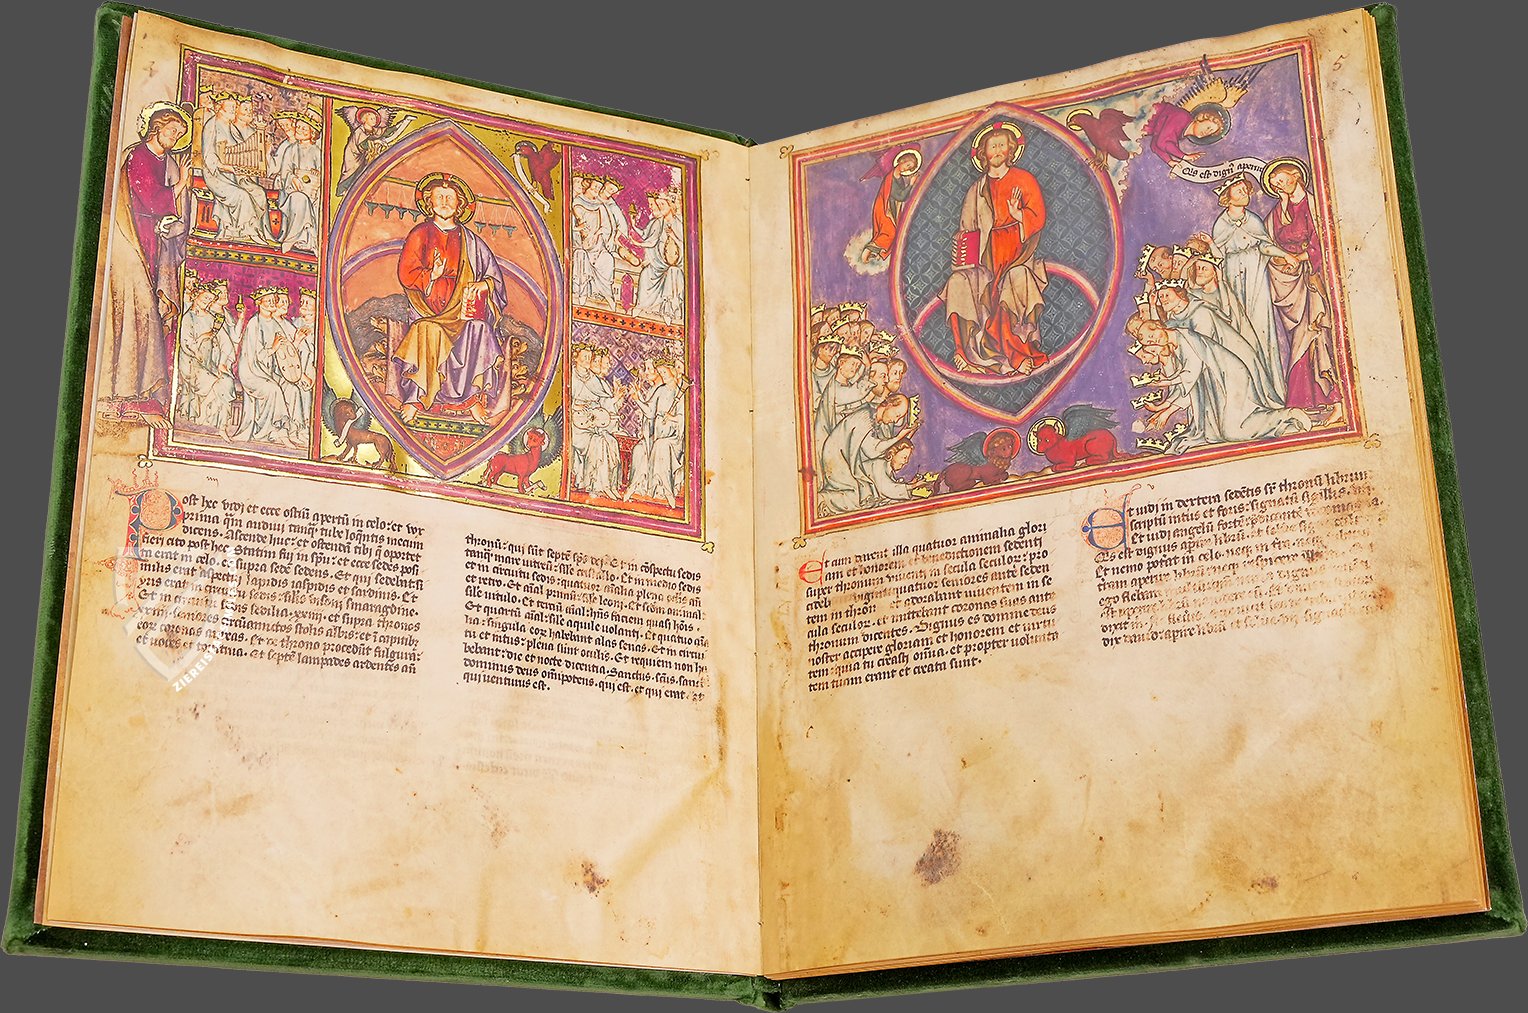 4
Post hec vidi et ecce ostiū apertū in celo: et vox
prima qm̄ audivi tanq̄ tube loq̄ntis mecum
dicens. Ascende huc: et ostendā tibi q̄ oportet
fieri cito post hec. Statim fui in sp̄u: et ecce sedes posi
ta erat in celo, et supra sedē sedens. Et qui sedebat: si
milis erat aspectui lapidis iaspidis et sardinis. Et
yris erat in circuitu sedis: sil̄is visioni smaragdine.
Et in circuitu sedis sedilia .xxiiii. et supra thronos
xxiiii. seniores circūamictos stolis albis: et ī capitib;
eor̄ coronas aureas. Et de throno procedūt fulgura:
et voces et tonitrua. Et septē lampades ardentes añ
thronū: qui sūt septē sp̄s dei. Et in cōspectu sedis
tanq̄ mare vitreū: sil̄e cristallo. Et in medio sedis
et in circuitu sedis: quatuor aīalia plena oculis añ
et retro. Et aīal primū: sil̄e leoni. Et scd̄m animal:
sil̄e vitulo. Et tertiū aīal: hn̄s faciem quasi hōis.
Et quartū aīal: sil̄e aquile volanti. Et quatuor aīa
lia: singula eor̄ habebant alas senas. Et in circui
tu et intus: plena sunt oculis. Et requiem non ha
bebant: die et nocte dicentia. Sanctus. sc̄us. sanc
dominus deus om̄ipotens. qui est. et qui erat. et
qui venturus est.
5
Q̄s est dign̄ aperire
Et cum dirent illa quatuor animalia glori
am et honorem et benedictionem sedenti
super thronum viventi in secula seculor̄: pro
cideb viginti quatuor seniores ante seden
tem in thrōn et adorabant viventem in se
cula seculor̄. et mittebant coronas suas ante
thronum dicentes. Dignus es domine deus
noster accipere gloriam et honorem et virtu
tem: quia tu creasti omīa. et propter volunta
tem tuam erant et creata sunt.
Et vidi in dextera sedētis sr̄ thronū librum
scriptū intus et foris: signatū sigillis. vii.
Et vidi angelū fortē: p̄dicantē voce magna.
Q̄s est dignus aperire librū: et solvere signac
Et nemo poterat in celo. neq; in tr̄a. neq;
tr̄am aperire librū: neq;
ego flebam
aperire librū
dixit m
dix david: aperire librū et solve. vii. signac
ZIEREIS